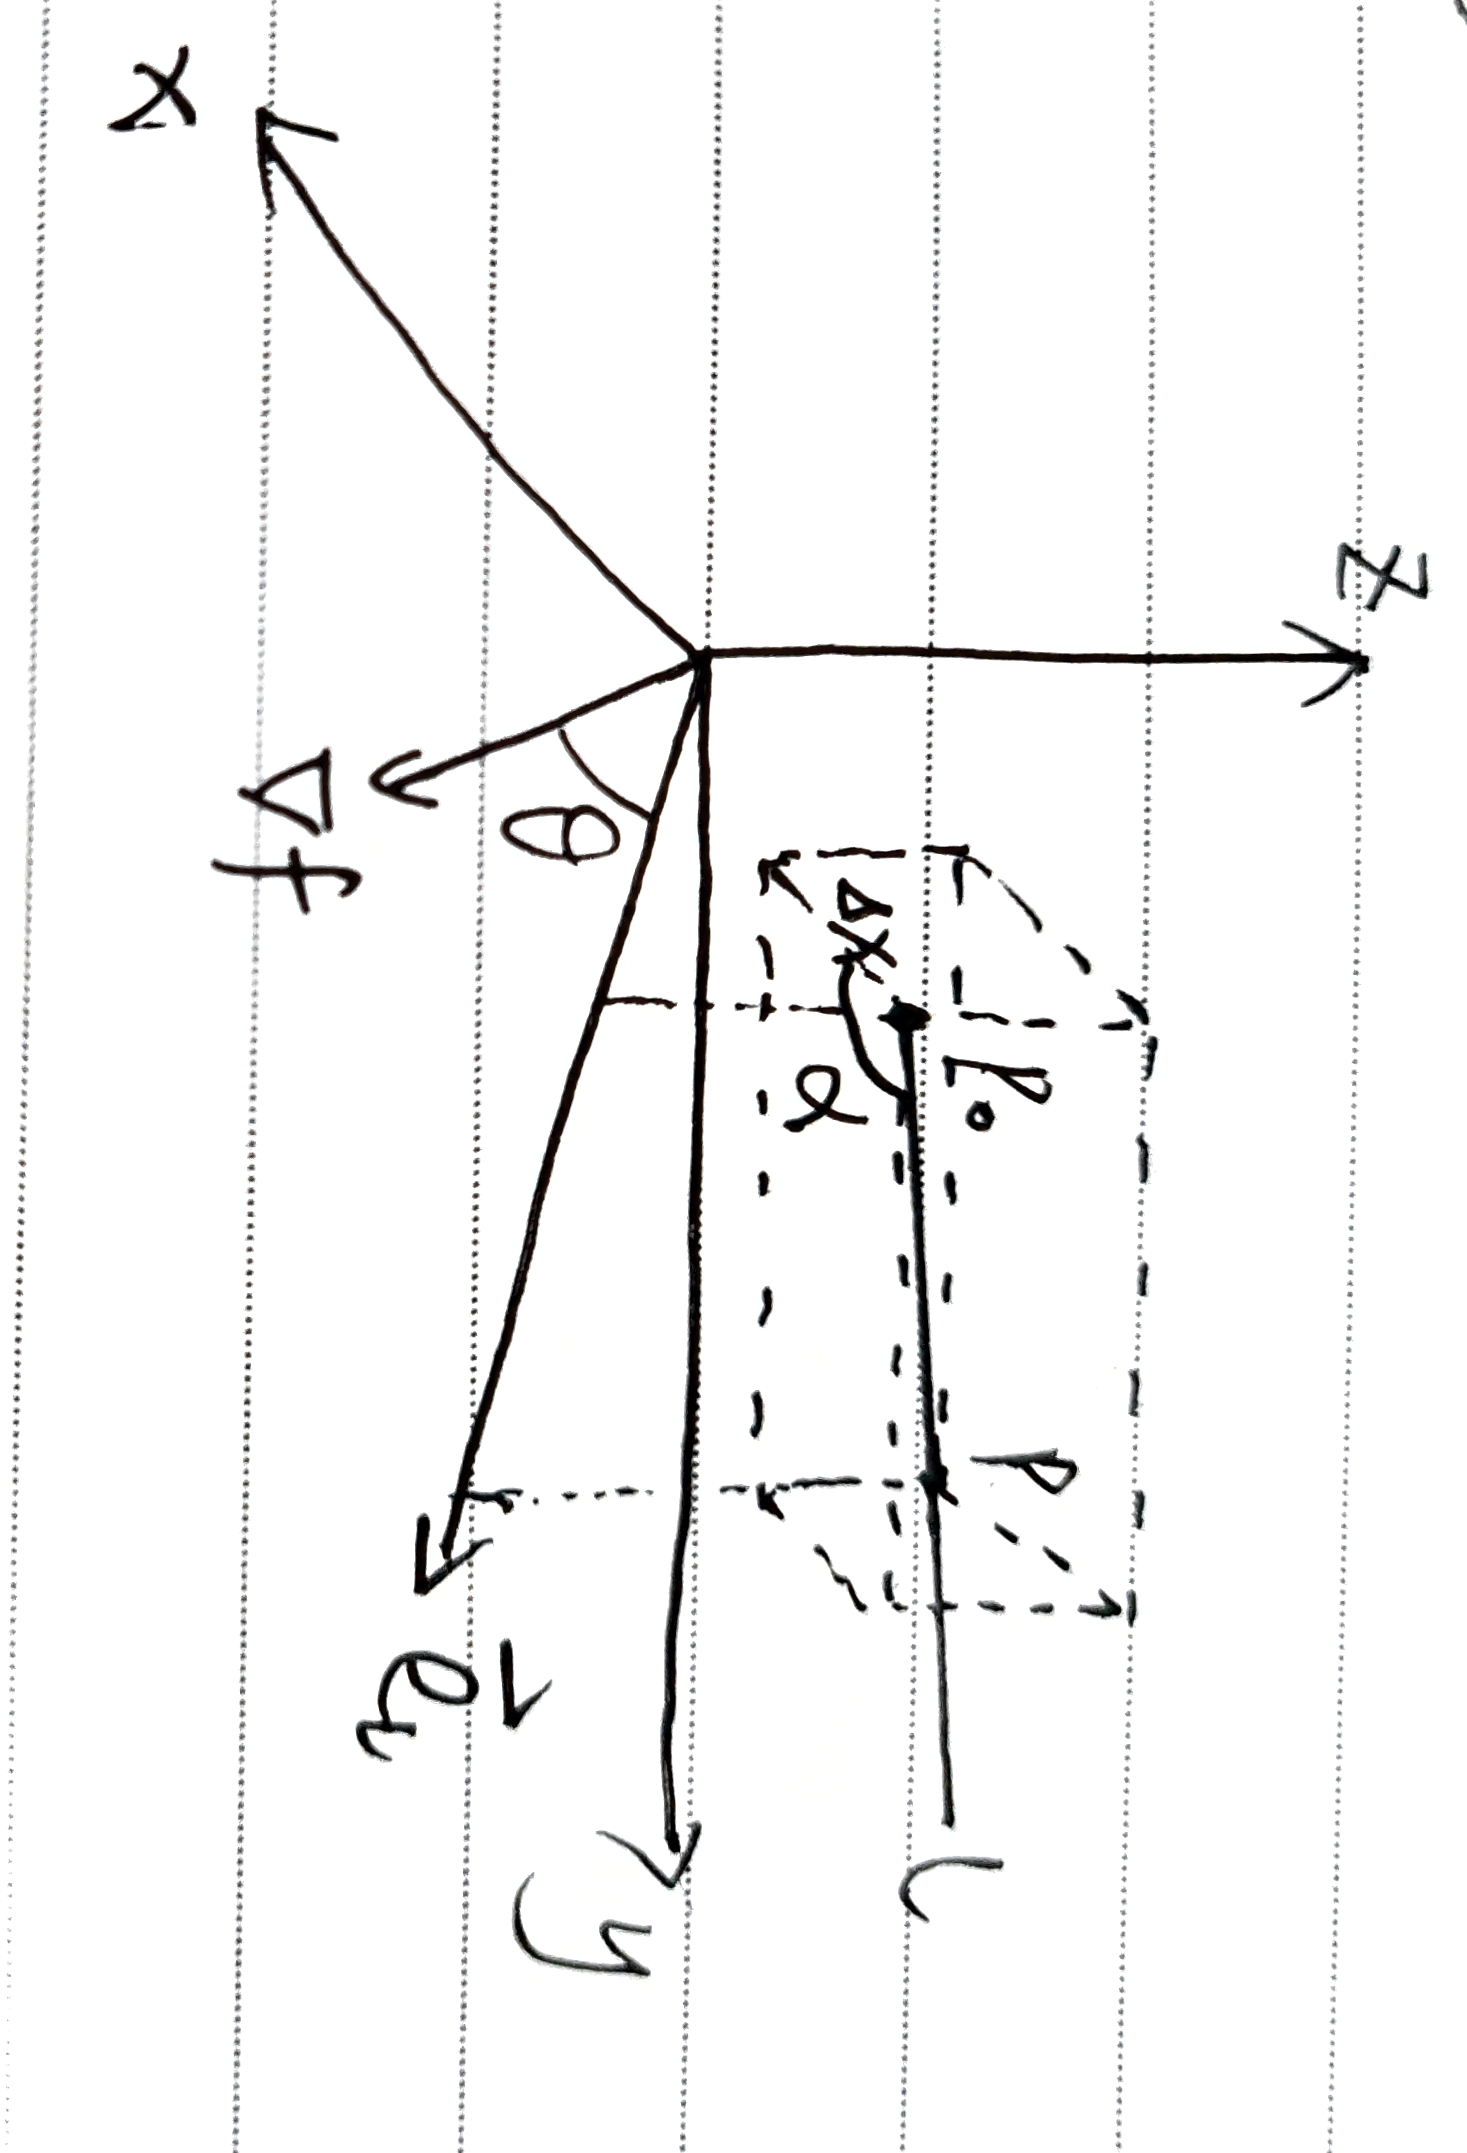 z
P₀
P
l
Δx
α
y
θ
e⃗ₗ
∇f
x